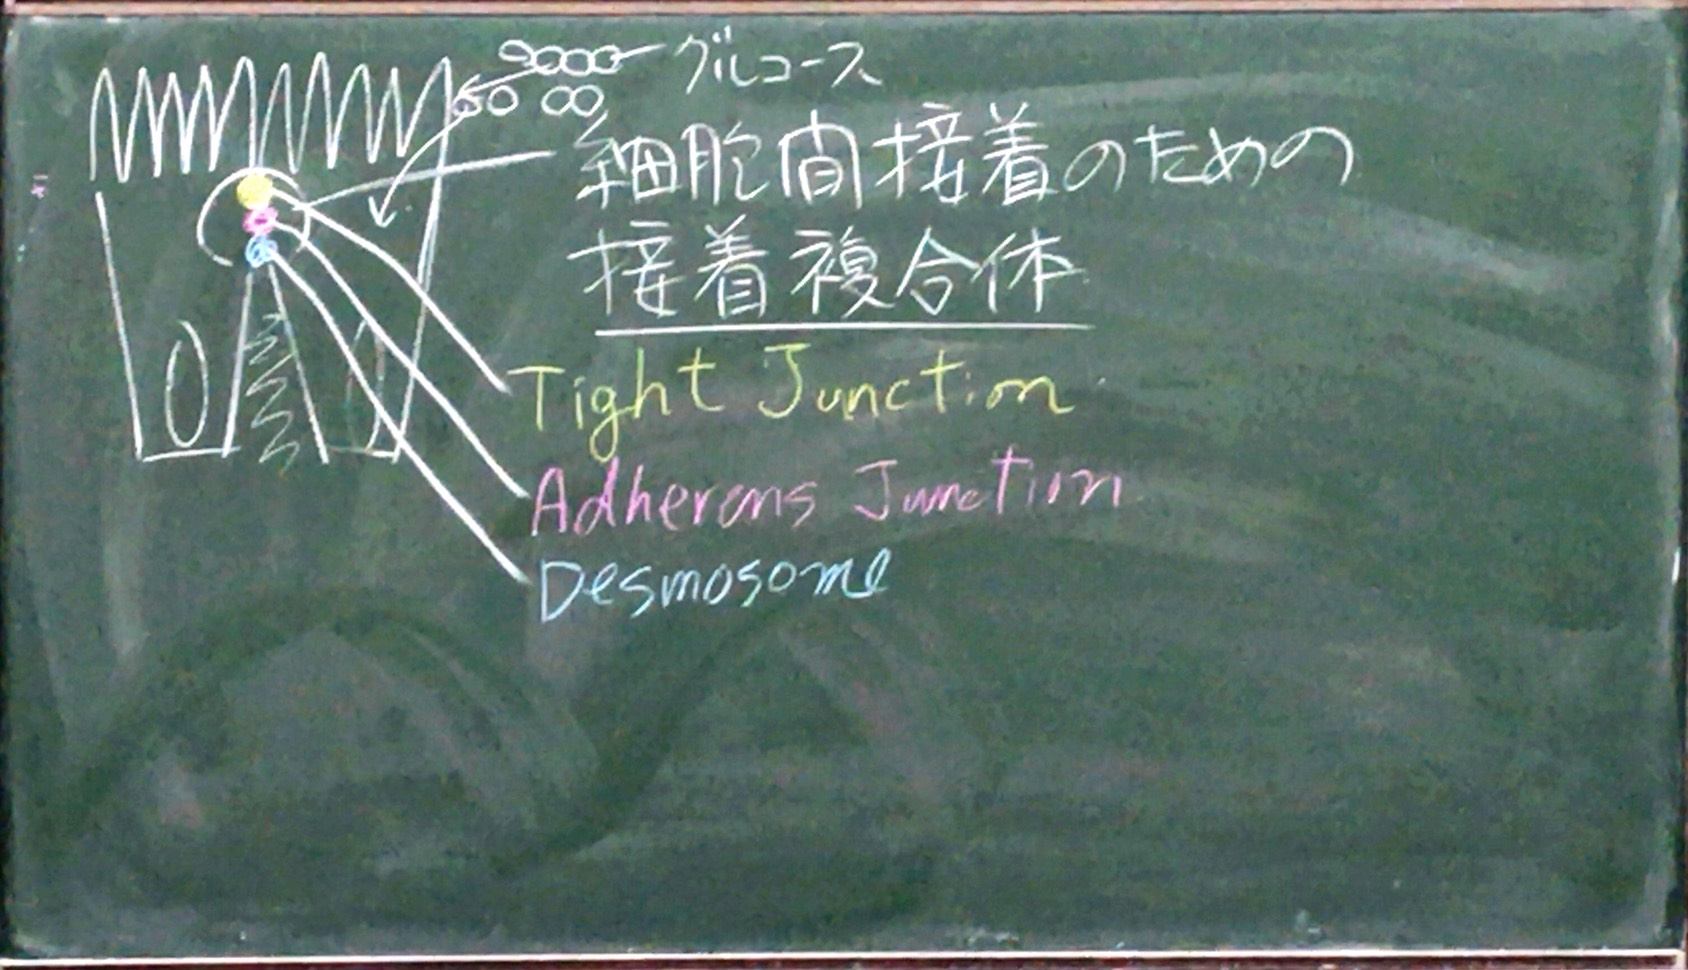 グルコース
細胞間接着のための
接着複合体
Tight Junction
Adherens Junction
Desmosome